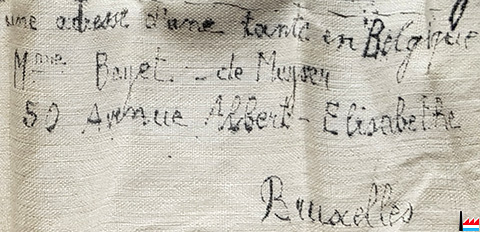 une adresse d'une tante en Belgique
Mme Boyet - de Muysen
50 Avenue Albert - Elisabethe
Bruxelles